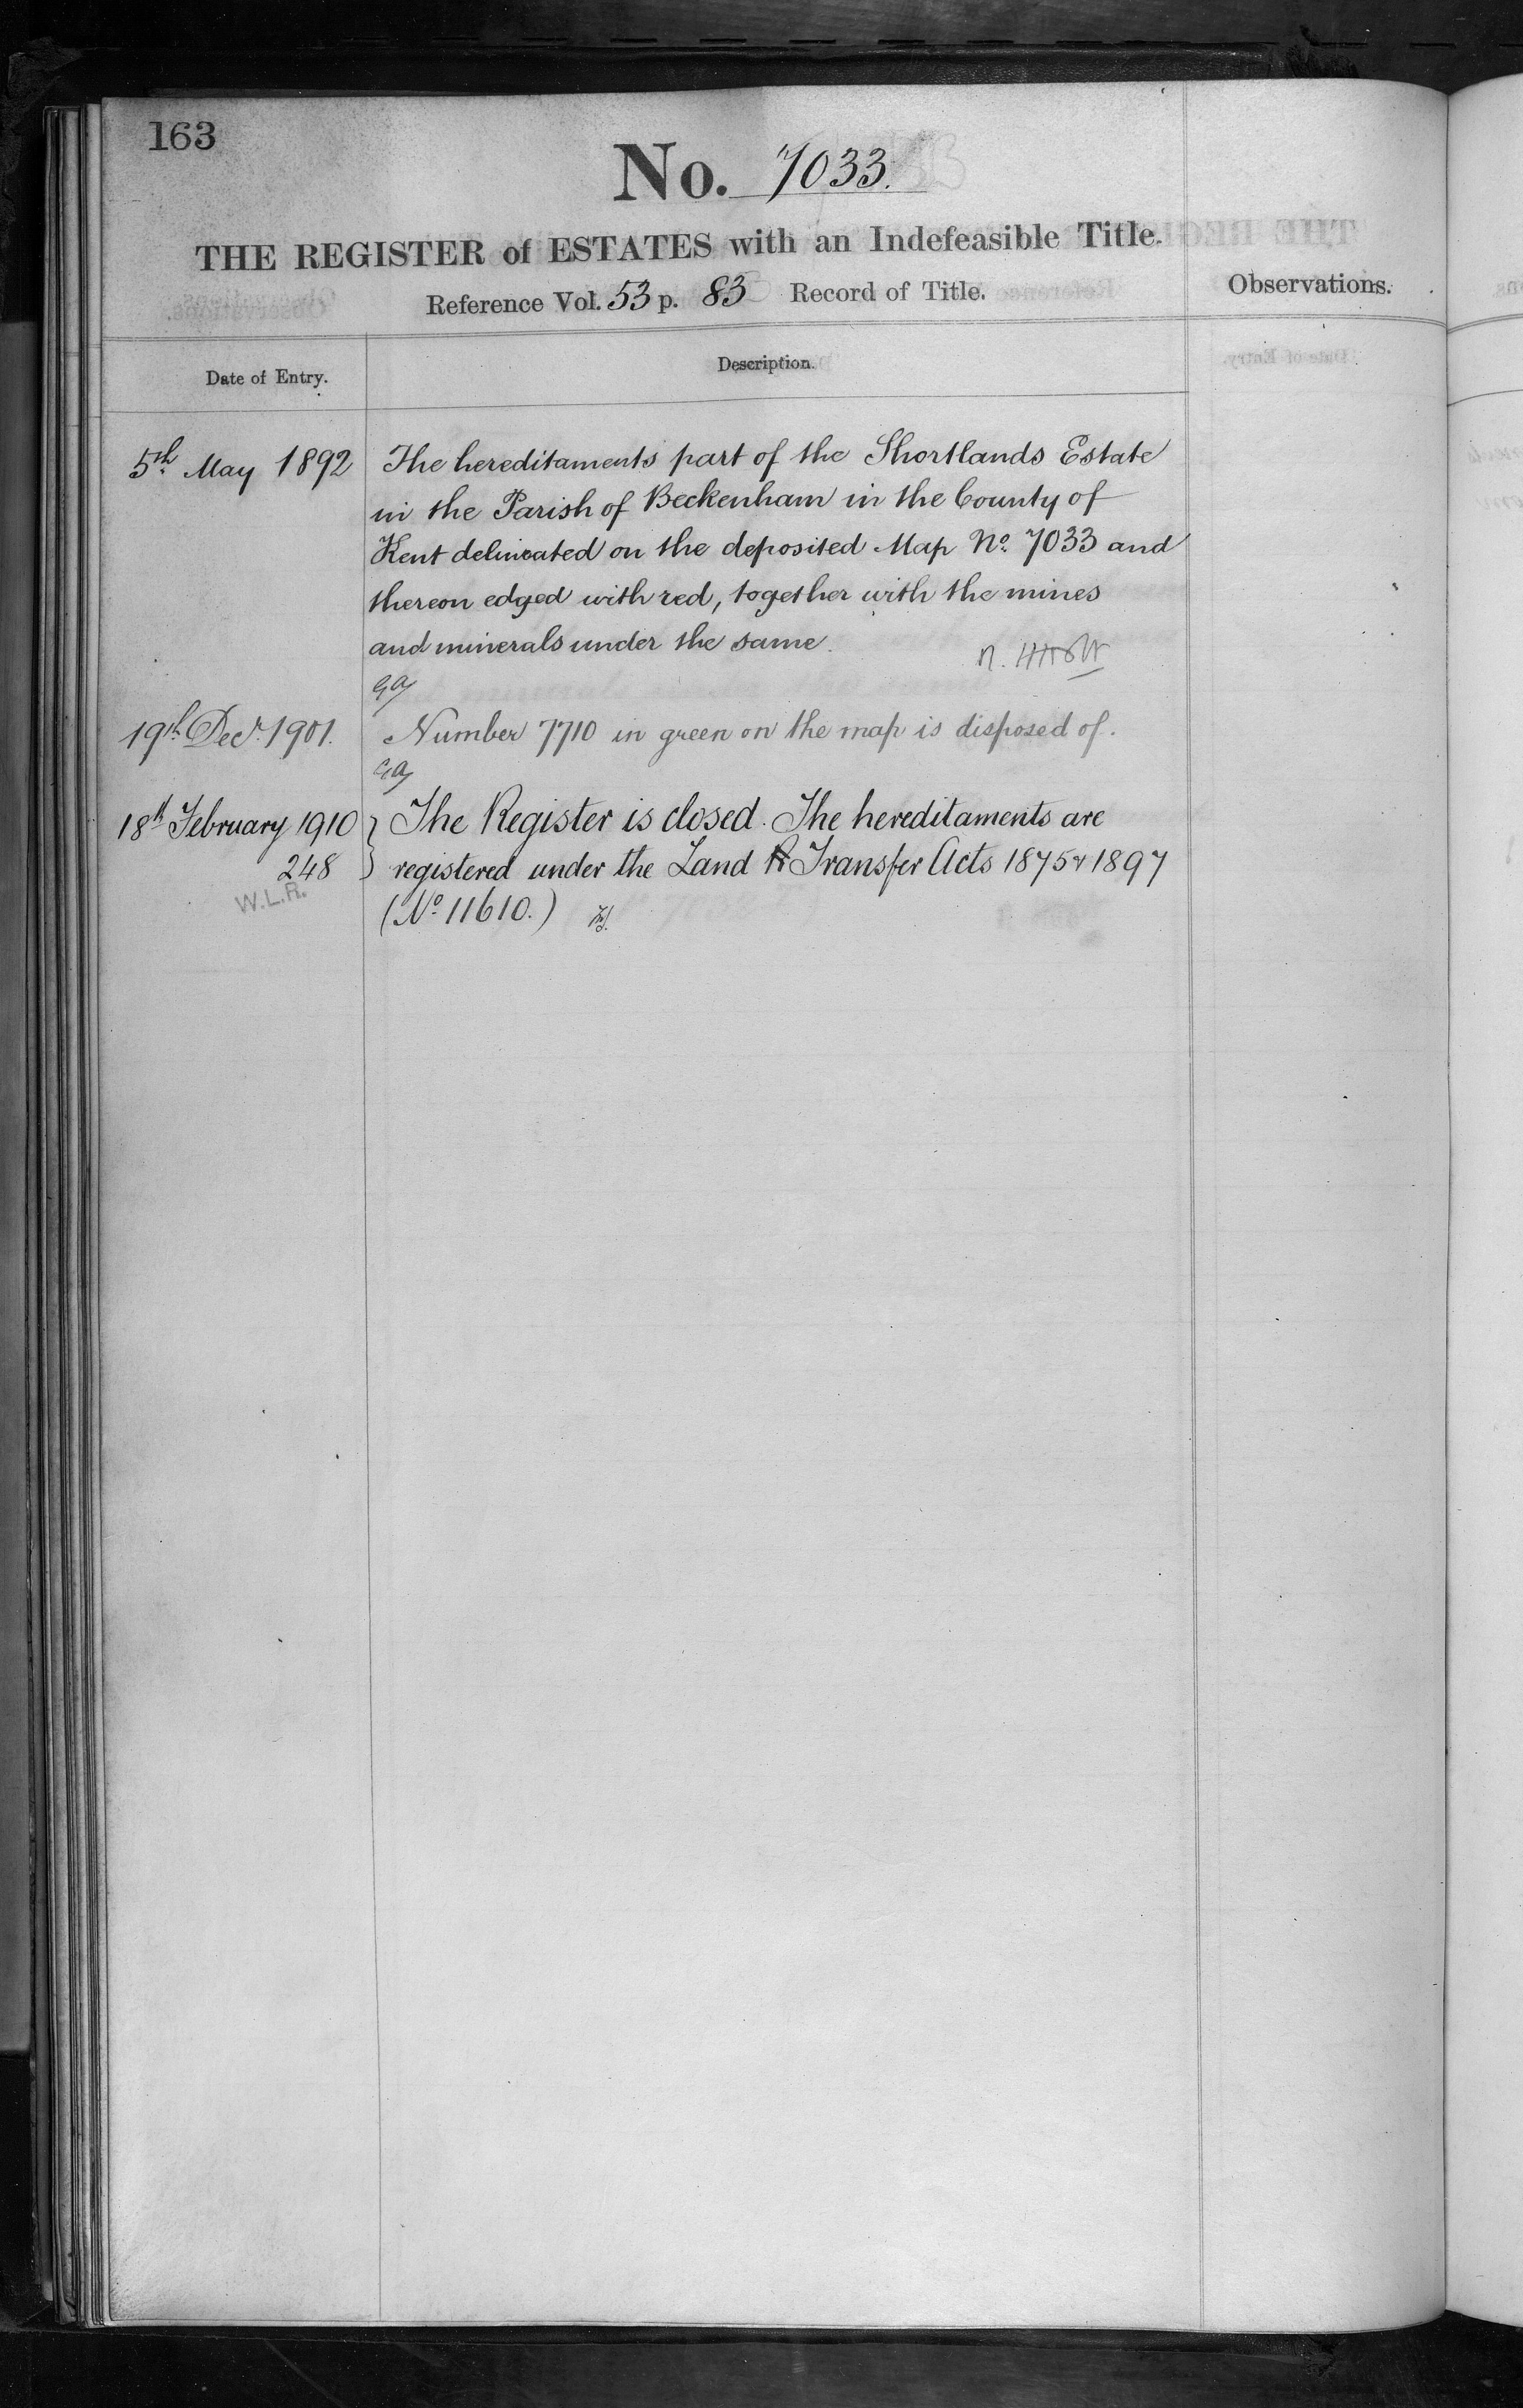 163
No. 7033.
THE REGISTER of ESTATES with an Indefeasible Title.
Reference Vol. 53 p. 83 Record of Title.
Observations.
Date of Entry.
Description.
5th May 1892 The hereditaments part of the Shortlands Estate
in the Parish of Beckenham in the County of
Kent delineated on the deposited Map No. 7033 and
thereon edged with red, together with the mines
and minerals under the same.
19th Decr. 1901. Number 7710 in green on the map is disposed of.
18th February 1910 } The Register is closed. The hereditaments are
248 } registered under the Land Transfer Acts 1875 & 1897
W.L.R.
(No 11610.)